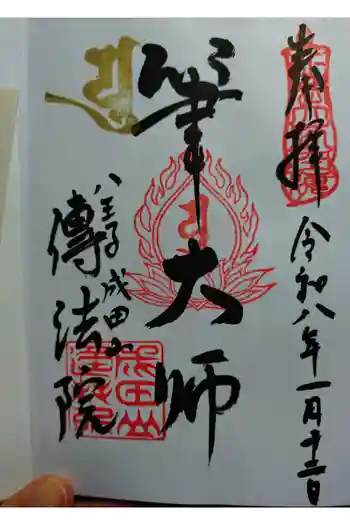 奉拝
令和八年一月十三日
筆大師
八王子 成田山
傳法院